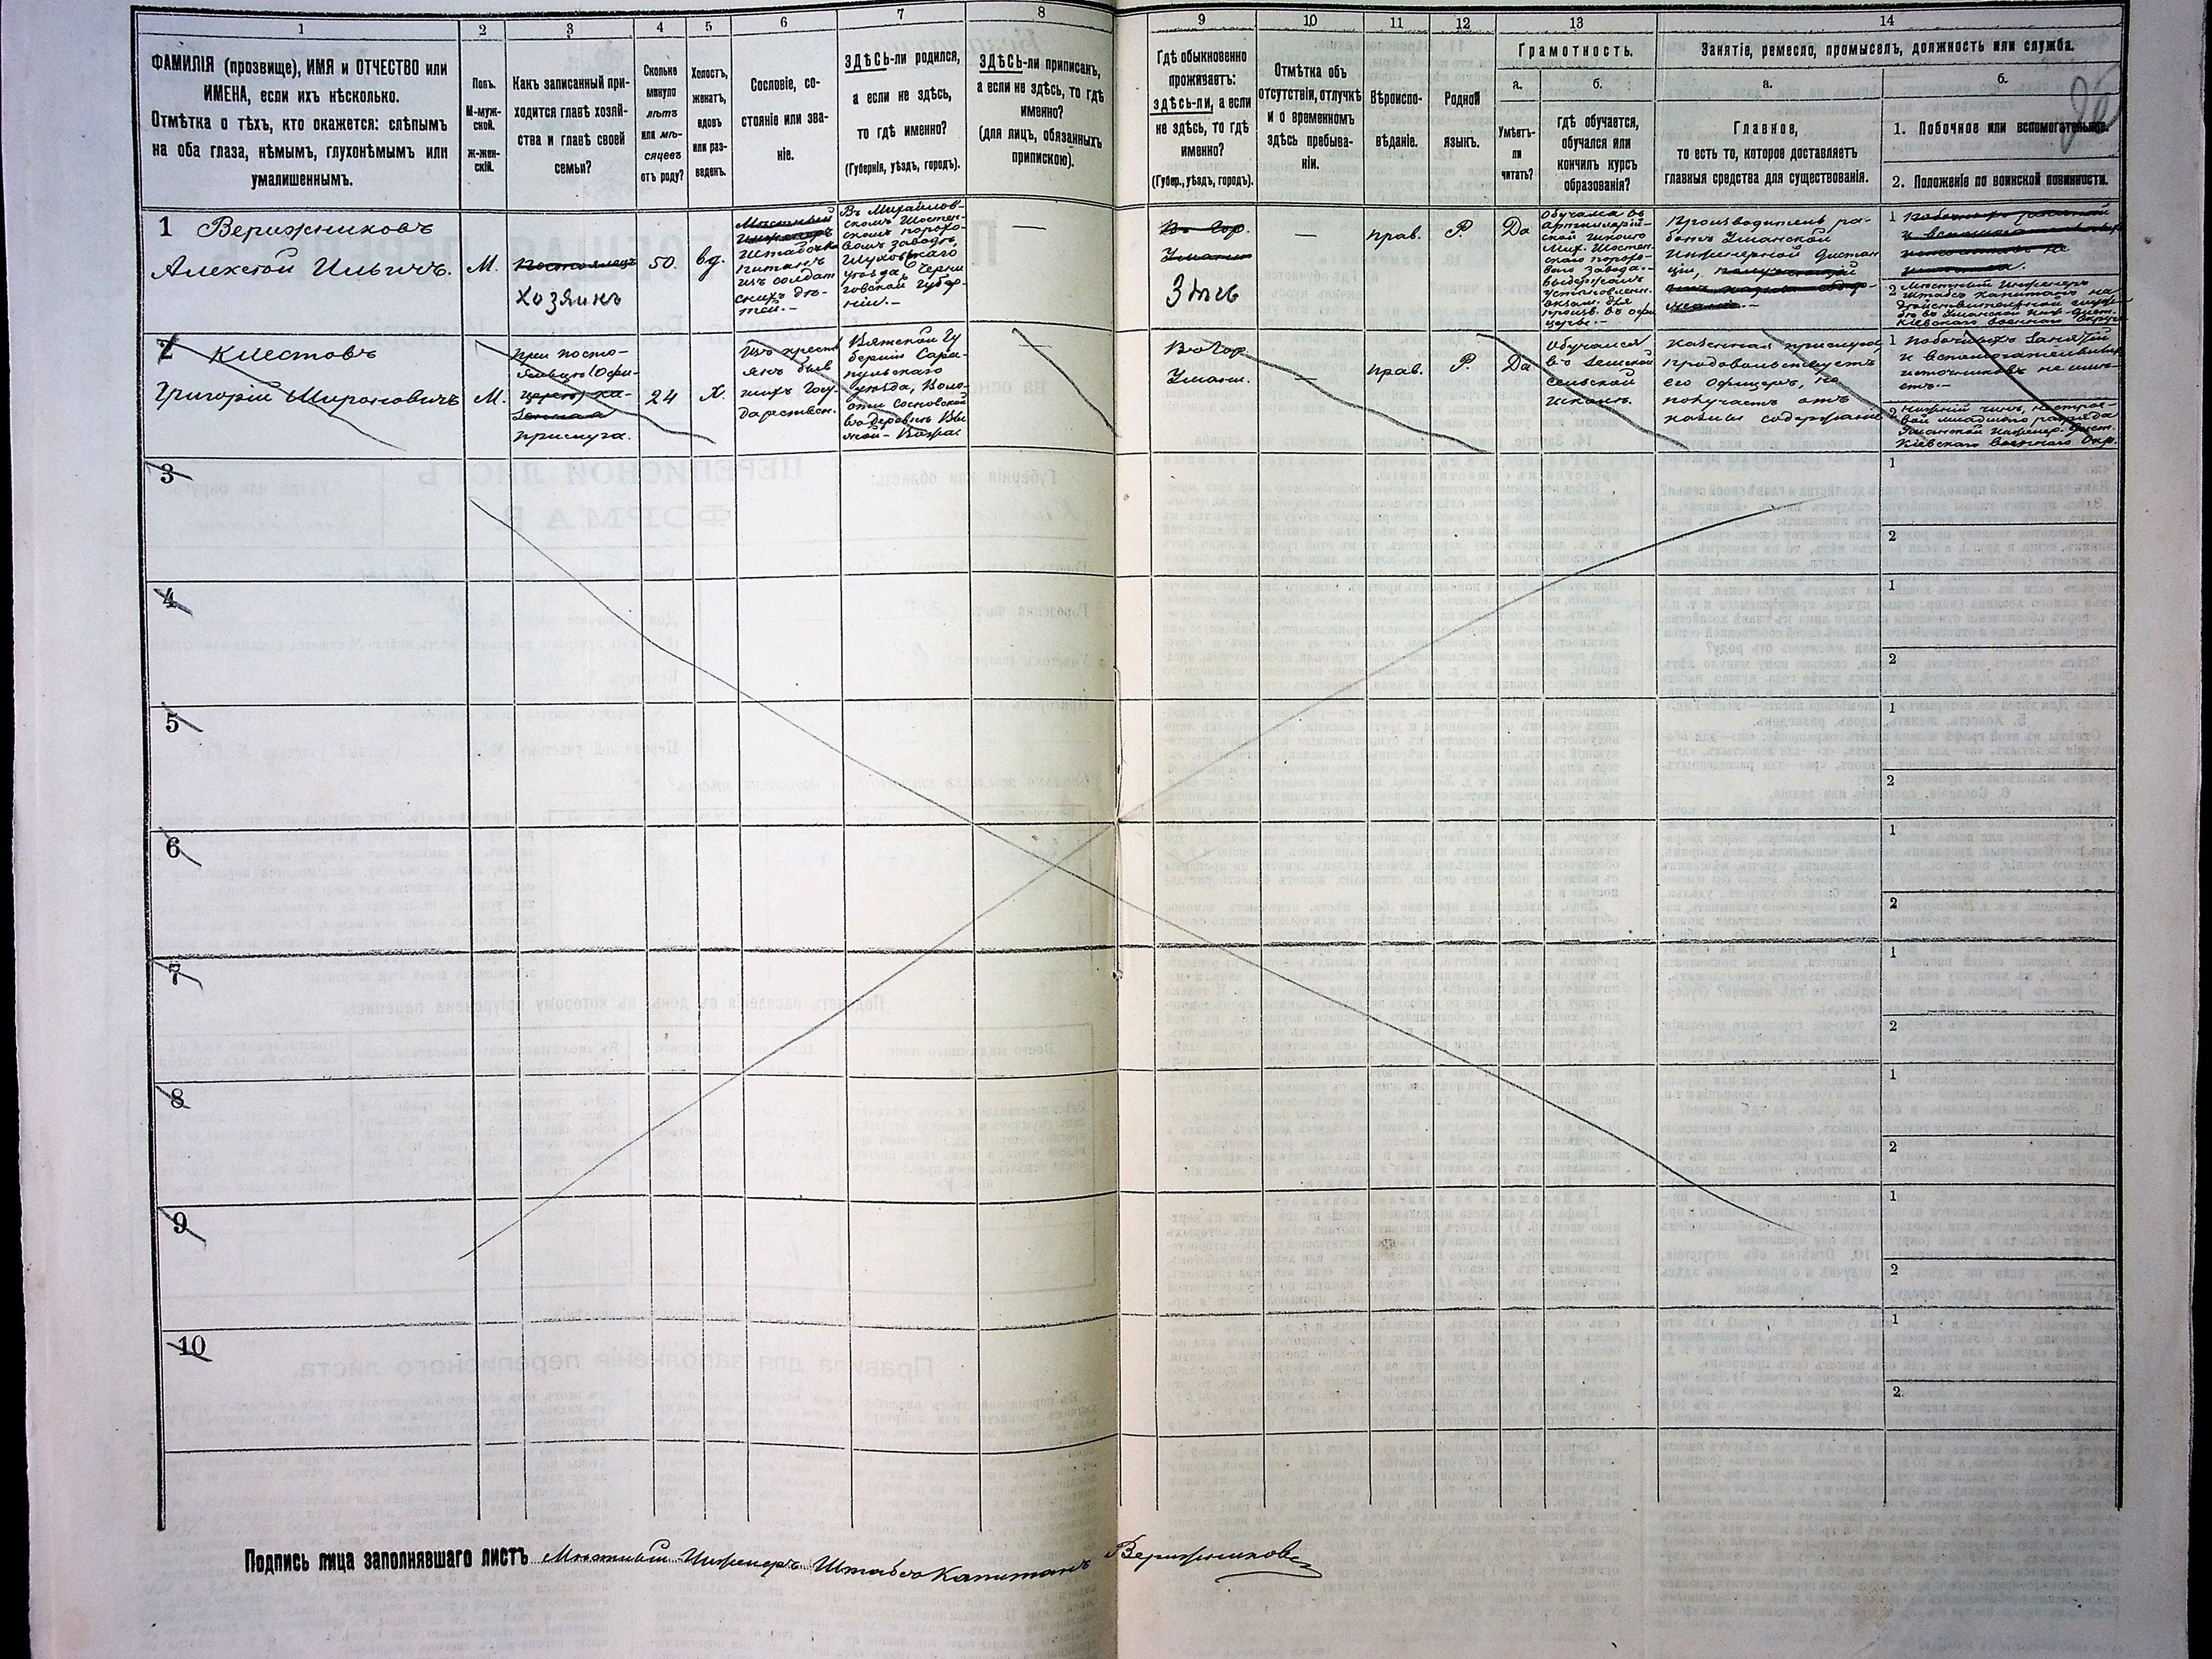 1
2
3
4
5
6
7
8
9
10
11
12
13
14
ФАМИЛІЯ (прозвище), ИМЯ и ОТЧЕСТВО или
ИМЕНА, если ихъ нѣсколько.
Отмѣтка о тѣхъ, кто окажется: слѣпымъ
на оба глаза, нѣмымъ, глухонѣмымъ или
умалишеннымъ.
Полъ.
М-муж-
ской.
ж-жен-
скій.
Какъ записанный при-
ходится главѣ хозяй-
ства и главѣ своей
семьи?
Сколько
минуло
лѣтъ
или мѣ-
сяцевъ
отъ роду?
Холостъ,
женатъ,
вдовъ
или раз-
веденъ.
Сословіе, со-
стояніе или зва-
ніе.
ЗДѢСЬ-ли родился,
а если не здѣсь,
то гдѣ именно?
(Губернія, уѣздъ, городъ).
ЗДѢСЬ-ли приписанъ,
а если не здѣсь, то гдѣ
именно?
(для лицъ, обязанныхъ
припискою).
Гдѣ обыкновенно
проживаетъ:
здѣсь-ли, а если
не здѣсь, то гдѣ
именно?
(Губер., уѣздъ, городъ).
Отмѣтка объ
отсутствіи, отлучкѣ
и о временномъ
здѣсь пребыва-
ніи.
Вѣроиспо-
вѣданіе.
Родной
языкъ.
Грамотность.
а.
Умѣетъ-
ли
читать?
б.
гдѣ обучается,
обучался или
кончилъ курсъ
образованія?
Занятіе, ремесло, промыселъ, должность или служба.
а.
Главное,
то есть то, которое доставляетъ
главныя средства для существованія.
б.
1. Побочное или вспомогательное.
2. Положеніе по воинской повинности.
1 Верижниковъ
Алексѣй Ильичъ.
М.
Постоялецъ
Хозяинъ
50.
вд.
Мѣстный
Инженеръ
Штабсъ
питанъ
изъ солдат
скихъ дѣ-
тей.—
Въ Михайлов-
скомъ Шостен-
скомъ порохо-
вомъ заводѣ,
Глуховскаго
уѣзда, Черни
говской губер-
ніи.—
—
Въ Гор.
Умани
Здѣсь
—
прав.
Р.
Да
Обучался въ
Артиллерій-
ской школѣ
Мих. Шостен-
скаго порохо-
ваго завода.-
выдержалъ
установлен.
экзам. для
произв. въ офи
церы.—
Производитель ра-
ботъ Уманской
Инженерной Дистан
ціи,
1
2 Мѣстный Инженеръ
Штабсъ Капитанъ на
дѣйствительной служ-
бѣ въ Уманской Инж. Дист.
Кіевскаго Военнаго Округа
2 Клестовъ
Григорій Мироновичъ
М.
При посто-
яльцѣ (Офи-
церѣ) ка-
зенная
прислуга.
24
Х.
Изъ крест
янъ быв
шихъ Госу-
дарствен.
Вятской Гу
берніи Сара-
пульскаго
уѣзда, Воло-
сти Сосновской
—
Въ Гор.
Умани.
—
прав.
Р.
Да
Обучался
въ Земской
сельской
школѣ.
Казенная прислуга,
продовольствуетъ
его офицеръ, но
получаетъ отъ
казны содержаніе
1 Побочныхъ занятій
и вспомогательныхъ
источниковъ не имѣ-
етъ.—
2 Нижній чинъ, нестрое-
вой младшаго разряда
Уманской Инженер. Дист.
Кіевскаго Военнаго Окр.
3
1
2
4
1
2
5
1
2
6
1
2
7
1
2
8
1
2
9
1
2
10
1
2
Подпись лица заполнявшаго листъ Мѣстный Инженеръ Штабсъ Капитанъ Верижниковъ